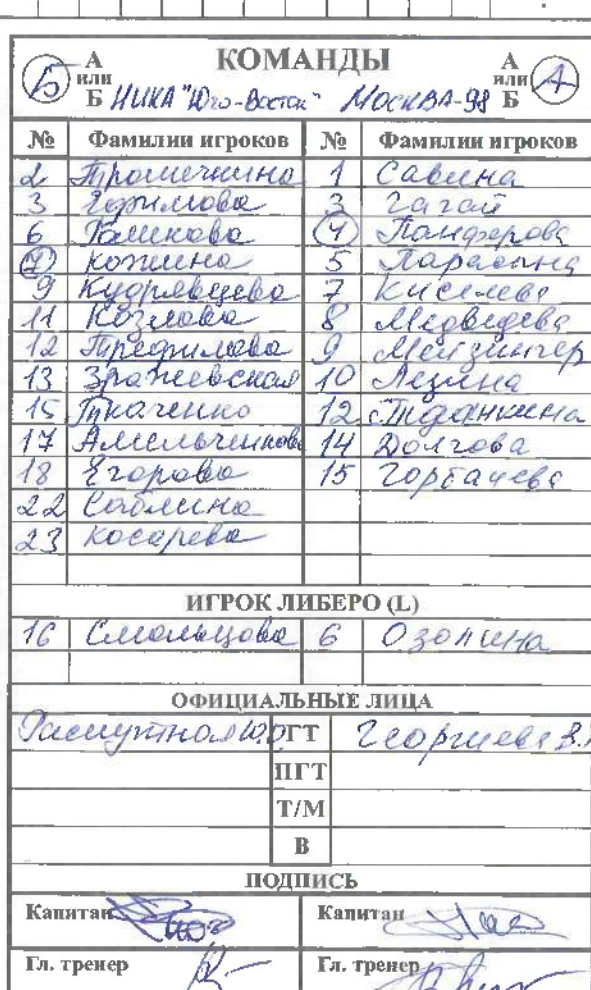 КОМАНДЫ
Б А или Б НИКА "Юго-Восток" МОСКВА-98 А или Б А
№ Фамилии игроков № Фамилии игроков
2 1 Савина
3 Ефимова 3 Гагай
6 Галинова 4 Панферова
7 Кожина 5
9 Кудрявцева 7 Киселева
11 Козлова 8 Медведева
12 Трефилова 9 Мейзингер
13 Зражевская 10 Лезина
15 Ткаченко 12
17 14 Долгова
18 Егорова 15 Горбачева
22 Саблина
23 Косарева
ИГРОК ЛИБЕРО (L)
16 6 Озолина
ОФИЦИАЛЬНЫЕ ЛИЦА
ГТ
ПГТ
Т/М
В
ПОДПИСЬ
Капитан Капитан
Гл. тренер Гл. тренер